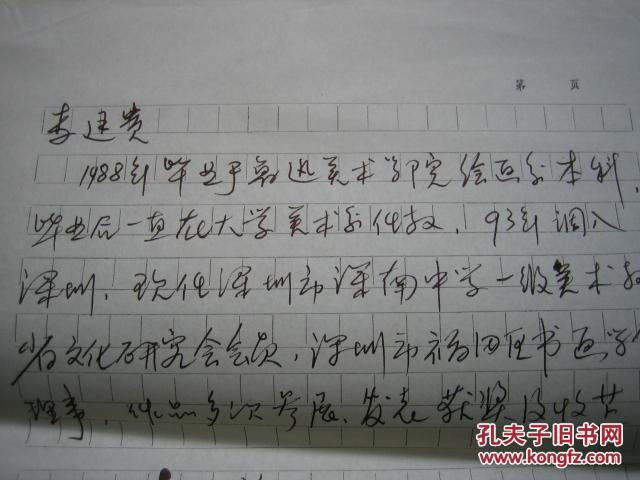 第 页
李建贵
1988年毕业于鲁迅美术学院绘画系本科
毕业后一直在大学美术系任教，93年调入
深圳，现任深圳市深南中学一级美术教
省文化研究会会员，深圳市福田区书画学
理事，作品多次参展、发表获奖及收
孔夫子旧书网
www.kongfz.com